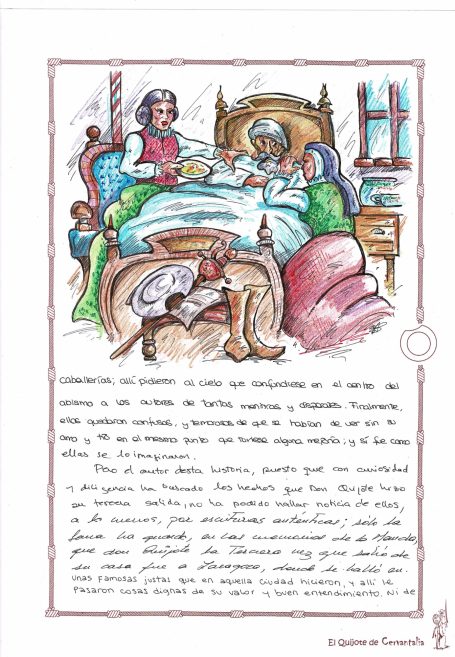 caballerías; allí pidieron al cielo que confundiese en el centro del
abismo a los autores de tantas mentiras y disparates. Finalmente,
ellas quedaron confusas, y temerosas de que se habían de ver sin su
amo y tío en el mesmo punto que tuviese alguna mejoría; y sí fue como
ellas se lo imaginaron.
Pero el autor desta historia, puesto que con curiosidad
y diligencia ha buscado los hechos que Don Quijote hizo
en su tercera salida, no ha podido hallar noticia de ellos,
a lo menos, por escrituras auténticas; sólo la
fama ha guardado, en las memorias de la Mancha,
que don Quijote la Tercera vez que salió de
su casa fue a Zaragoza, donde se halló en
unas famosas justas que en aquella ciudad hicieron, y allí le
pasaron cosas dignas de su valor y buen entendimiento. Ni de
El Quijote de Cervantalia